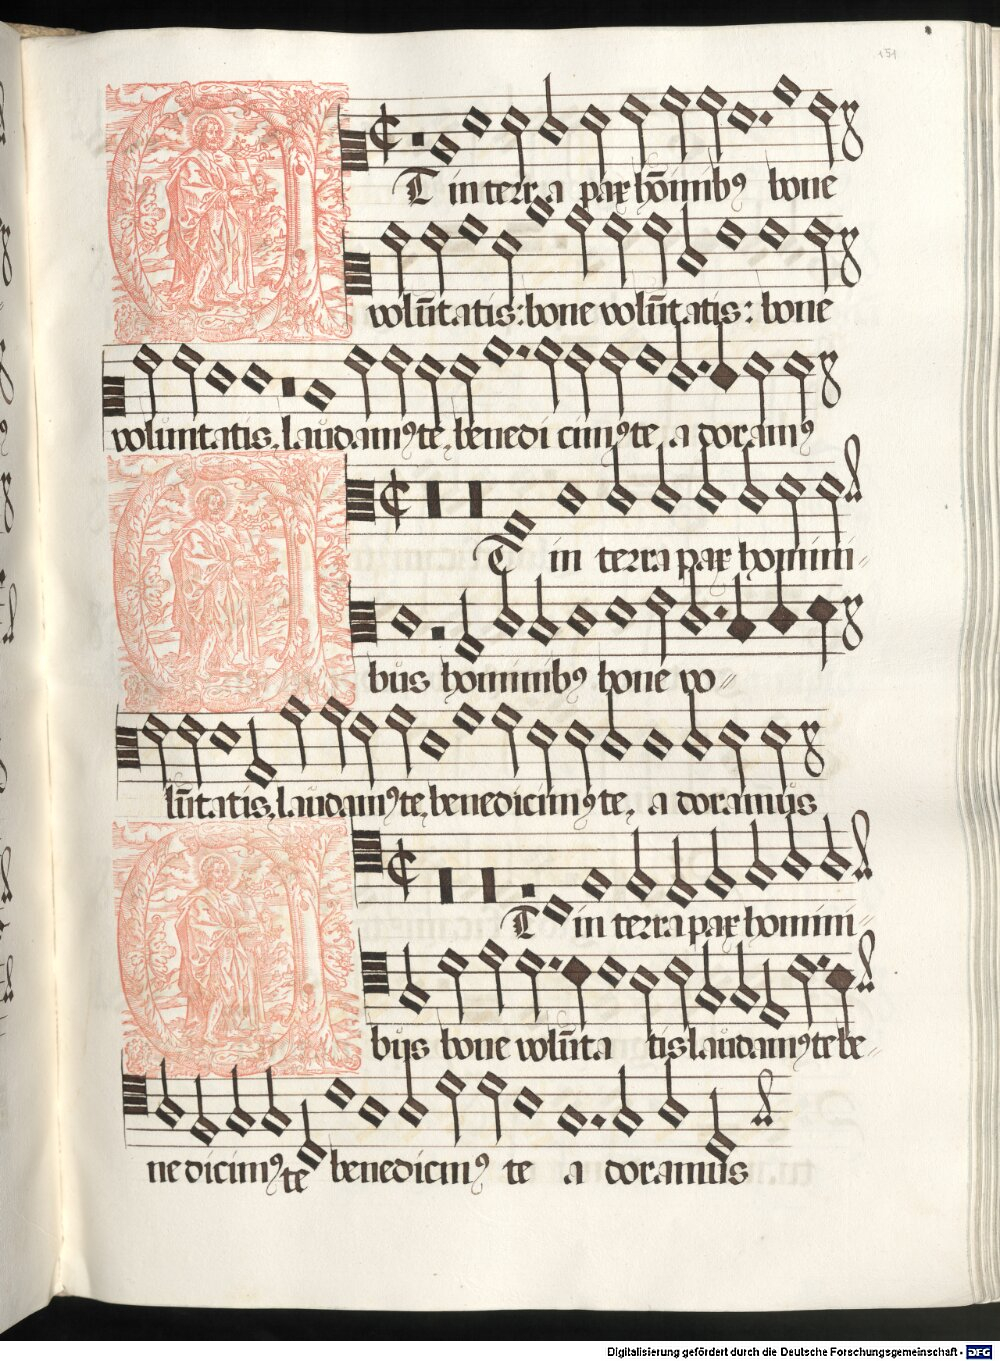 151
T in terra pax hōinibꝰ bone
volūtatis: bone volūtatis: bone
voluntatis. laudamꝰ te. benedicimꝰ te. adoramꝰ
T in terra pax homini
bus hominibꝰ bone vo
lūtatis. laudamꝰ te. benedicimꝰ te. adoramus
T in terra pax homini
bus bone volūta tis laudamꝰ te be
nedicimꝰ te benedicimꝰ te adoramus
Digitalisierung gefördert durch die Deutsche Forschungsgemeinschaft - DFG